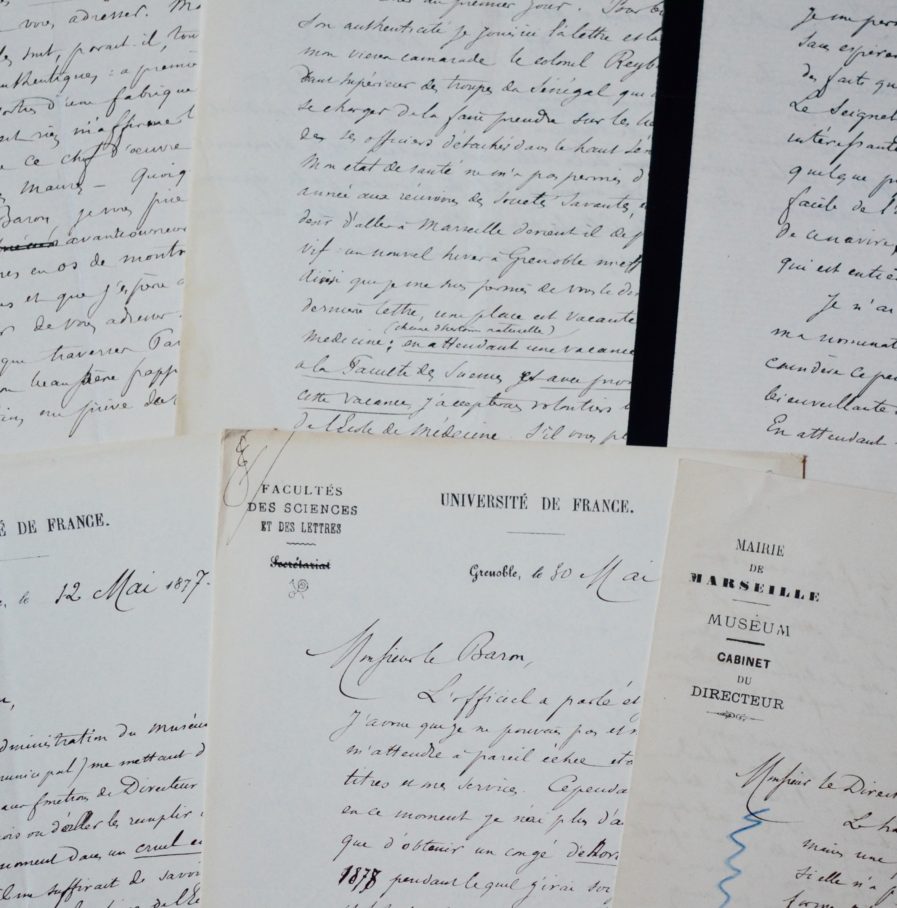 vous adresser.
sont, parait-il,
authentiques: a
d'une fabrique
m'affirment
ce chef d'œuvre
Maures – quoiq
Baron je vous prie
avant
en os de
et que j'espère
de vous adresser.
que traverser Par
beau frère
au premier jour.
Son authenticité je
mon vieux camarade le colonel Reyb
supérieur des troupes du Sénégal qui
se charger de la faire prendre sur les
des ses officiers détachés dans le haut Sén
Mon état de santé ne m'a pas permis d'
année aux réunions des Sociétés Savantes,
désir d'aller à Marseille devient il de p
vif: un nouvel hiver à Grenoble m'eff
ainsi que je me suis permis de vous le di
dernière lettre, une place est vacante
(chaire d'histoire naturelle)
Médecine; en attendant une vacance
à la Faculté des Sciences et avec
cette vacance, j'accepterais volontiers
de l'école de Médecine. S'il vous
Je me per
sans espéran
des faits qu
Le Seignel
intéressante
quelque p
facile de l'
De ce navire,
qui est entiè
Je n'ai
ma nominat
considère ce
bienveillante
En attendant
É DE FRANCE.
le 12 Mai 1877.
administration du muséu
municipal) me mettant d
aux fonctions de Directeur
ou d'aller les remplir
moment dans un cruel e
il me suffirait de savoi
de l'É
FACULTÉS
DES SCIENCES
ET DES LETTRES
Secrétariat
UNIVERSITÉ DE FRANCE.
Grenoble, le 30 Mai
Monsieur le Baron,
L'officiel a parlé et
J'avoue que je ne pouvais pas et n
m'attendre à pareil échec et
titres et mes services. Cependa
en ce moment je n'ai plus d'a
que d'obtenir un congé
1878 pendant lequel j'irai
MAIRIE
DE
MARSEILLE
MUSÉUM
CABINET
DU
DIRECTEUR
Monsieur le Direct
Le ha
mains une
si elle n'a